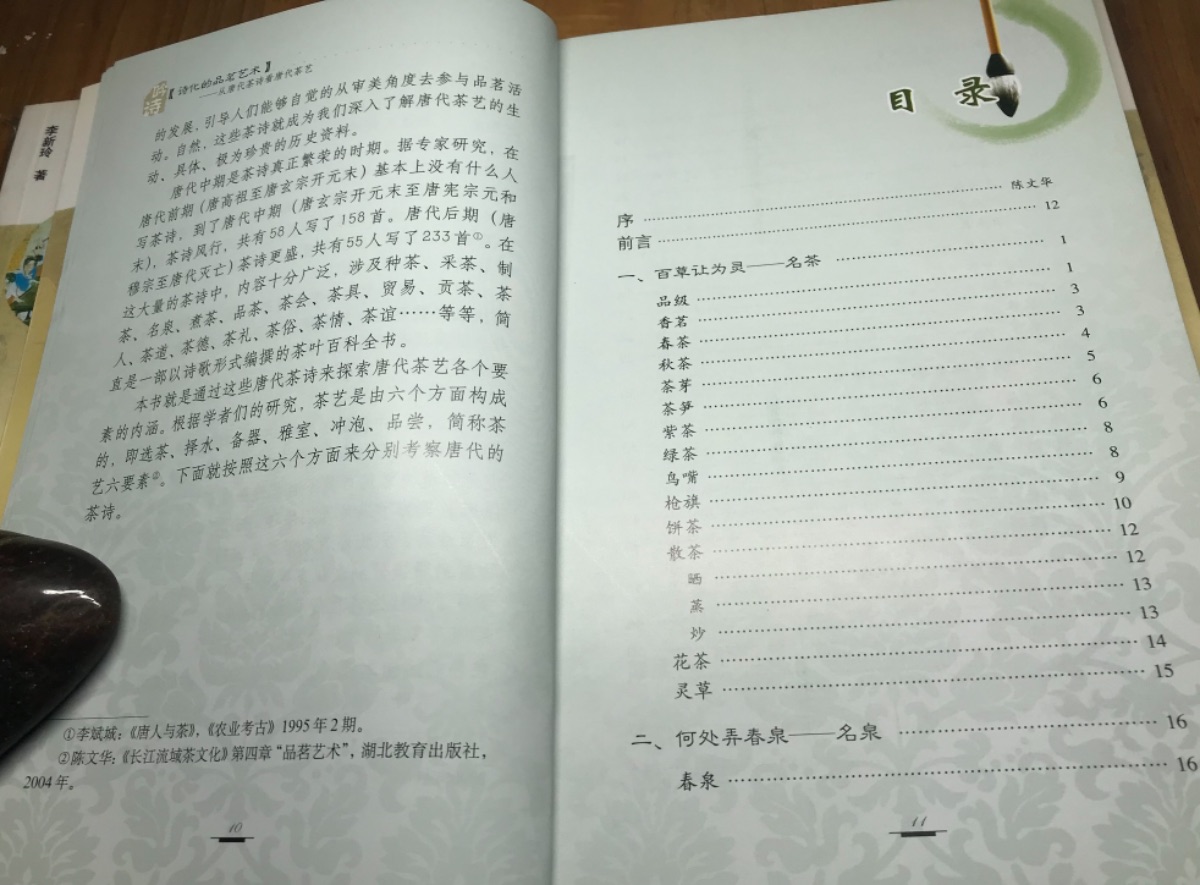 李新玲 著
【诗化的品茗艺术】
——从唐代茶诗看唐代茶艺
的发展，引导人们能够自觉的从审美角度去参与品茗活
动。自然，这些茶诗就成为我们深入了解唐代茶艺的生
动、具体、极为珍贵的历史资料。
唐代中期是茶诗真正繁荣的时期。据专家研究，在
唐代前期（唐高祖至唐玄宗开元末）基本上没有什么人
写茶诗，到了唐代中期（唐玄宗开元末至唐宪宗元和
末），茶诗风行，共有58人写了158首。唐代后期（唐
穆宗至唐代灭亡）茶诗更盛，共有55人写了233首①。在
这大量的茶诗中，内容十分广泛，涉及种茶、采茶、制
茶、名泉、煮茶、品茶、茶会、茶具、贸易、贡茶、茶
人、茶道、茶德、茶礼、茶俗、茶情、茶谊……等等，简
直是一部以诗歌形式编撰的茶叶百科全书。
本书就是通过这些唐代茶诗来探索唐代茶艺各个要
素的内涵。根据学者们的研究，茶艺是由六个方面构成
的，即选茶、择水、备器、雅室、冲泡、品尝，简称茶
艺六要素②。下面就按照这六个方面来分别考察唐代的
茶诗。
①李斌城：《唐人与茶》，《农业考古》1995年2期。
②陈文华：《长江流域茶文化》第四章“品茗艺术”，湖北教育出版社，
2004年。
10
目 录
序 …… 陈文华
前言 …… 12
一、百草让为灵——名茶 …… 1
品级 …… 1
香茗 …… 3
春茶 …… 3
秋茶 …… 4
茶芽 …… 5
茶笋 …… 6
紫茶 …… 6
绿茶 …… 8
鸟嘴 …… 8
枪旗 …… 9
饼茶 …… 10
散茶 …… 12
晒 …… 12
蒸 …… 13
炒 …… 13
花茶 …… 14
灵草 …… 15
二、何处弄春泉——名泉 …… 16
春泉 …… 16
11